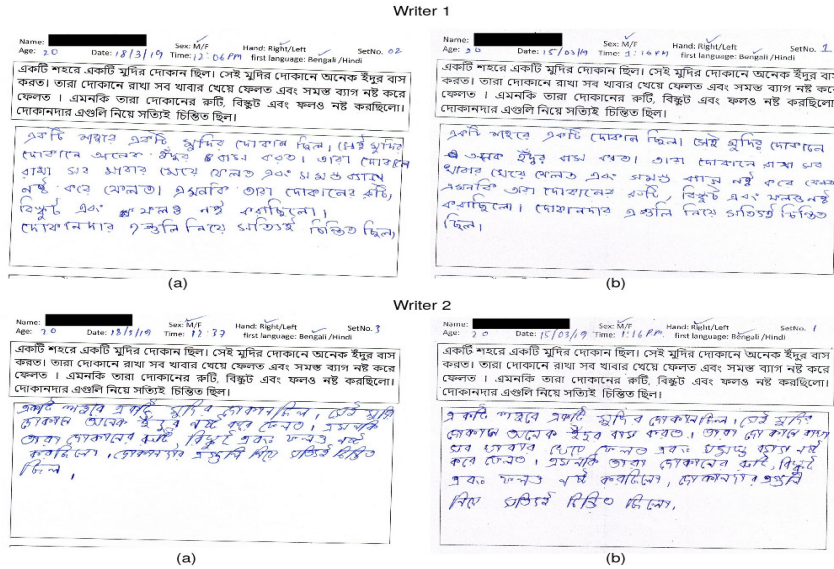 Writer 1
Name:
Age: 20 Date: 18/3/19 Sex: M/F Time: 12:06PM Hand: Right/Left first language: Bengali /Hindi SetNo. 02
একটি শহরে একটি মুদির দোকান ছিল। সেই মুদির দোকানে অনেক ইঁদুর বাস
করত। তারা দোকানে রাখা সব খাবার খেয়ে ফেলত এবং সমস্ত ব্যাগ নষ্ট করে
ফেলত । এমনকি তারা দোকানের রুটি, বিস্কুট এবং ফলও নষ্ট করছিলো।
দোকানদার এগুলি নিয়ে সত্যিই চিন্তিত ছিল।
একটি শহরে একটি মুদির দোকান ছিল। সেই মুদির
দোকানে অনেক ইঁদুর বাস করত। তারা দোকানে
রাখা সব খাবার খেয়ে ফেলত এবং সমস্ত ব্যাগ
নষ্ট করে ফেলত। এমনকি তারা দোকানের রুটি,
বিস্কুট এবং ফলও নষ্ট করছিলো।
দোকানদার এগুলি নিয়ে সত্যিই চিন্তিত ছিল,
(a)
Name:
Age: 20 Date: 15/03/19 Sex: M/F Time: 1:16PM Hand: Right/Left first language: Bengali /Hindi SetNo. 1
একটি শহরে একটি মুদির দোকান ছিল। সেই মুদির দোকানে অনেক ইঁদুর বাস
করত। তারা দোকানে রাখা সব খাবার খেয়ে ফেলত এবং সমস্ত ব্যাগ নষ্ট করে
ফেলত । এমনকি তারা দোকানের রুটি, বিস্কুট এবং ফলও নষ্ট করছিলো।
দোকানদার এগুলি নিয়ে সত্যিই চিন্তিত ছিল।
একটি শহরে একটি দোকান ছিল। সেই মুদির দোকানে
ইঁদুর বাস করত। তারা দোকানে রাখা সব
খাবার খেয়ে ফেলত এবং সমস্ত ব্যাগ নষ্ট করে
এমনকি তারা দোকানের রুটি, বিস্কুট এবং ফলও নষ্ট
করছিলো। দোকানদার এগুলি নিয়ে সত্যিই চিন্তিত
ছিল।
(b)
Writer 2
Name:
Age: 20 Date: 18/3/19 Sex: M/F Time: 12:37 Hand: Right/Left first language: Bengali /Hindi SetNo. 3
একটি শহরে একটি মুদির দোকান ছিল। সেই মুদির দোকানে অনেক ইঁদুর বাস
করত। তারা দোকানে রাখা সব খাবার খেয়ে ফেলত এবং সমস্ত ব্যাগ নষ্ট করে
ফেলত । এমনকি তারা দোকানের রুটি, বিস্কুট এবং ফলও নষ্ট করছিলো।
দোকানদার এগুলি নিয়ে সত্যিই চিন্তিত ছিল।
একটি শহরে একটি মুদির দোকান ছিল, সেই মুদি
দোকানে অনেক ইঁদুর নষ্ট করে ফেলত। এমনকি
তারা দোকানের রুটি, বিস্কুট এবং ফলও নষ্ট
করছিলো, দোকানদার এগুলি নিয়ে সত্যিই চিন্তিত
ছিল,
(a)
Name:
Age: 20 Date: 15/03/19 Sex: M/F Time: 1:16PM. Hand: Right/Left first language: Bengali /Hindi SetNo. 1
একটি শহরে একটি মুদির দোকান ছিল। সেই মুদির দোকানে অনেক ইঁদুর বাস
করত। তারা দোকানে রাখা সব খাবার খেয়ে ফেলত এবং সমস্ত ব্যাগ নষ্ট করে
ফেলত । এমনকি তারা দোকানের রুটি, বিস্কুট এবং ফলও নষ্ট করছিলো।
দোকানদার এগুলি নিয়ে সত্যিই চিন্তিত ছিল।
একটি শহরে একটি মুদির দোকান ছিল, সেই মুদির
দোকানে অনেক ইঁদুর বাস করত, তারা দোকানে রাখা
সব খাবার খেয়ে ফেলত এবং সমস্ত ব্যাগ নষ্ট
করে ফেলত, এমনকি তারা দোকানের রুটি, বিস্কুট
এবং ফলও নষ্ট করছিলো, দোকানদার এগুলি
নিয়ে সত্যিই চিন্তিত ছিলো,
(b)